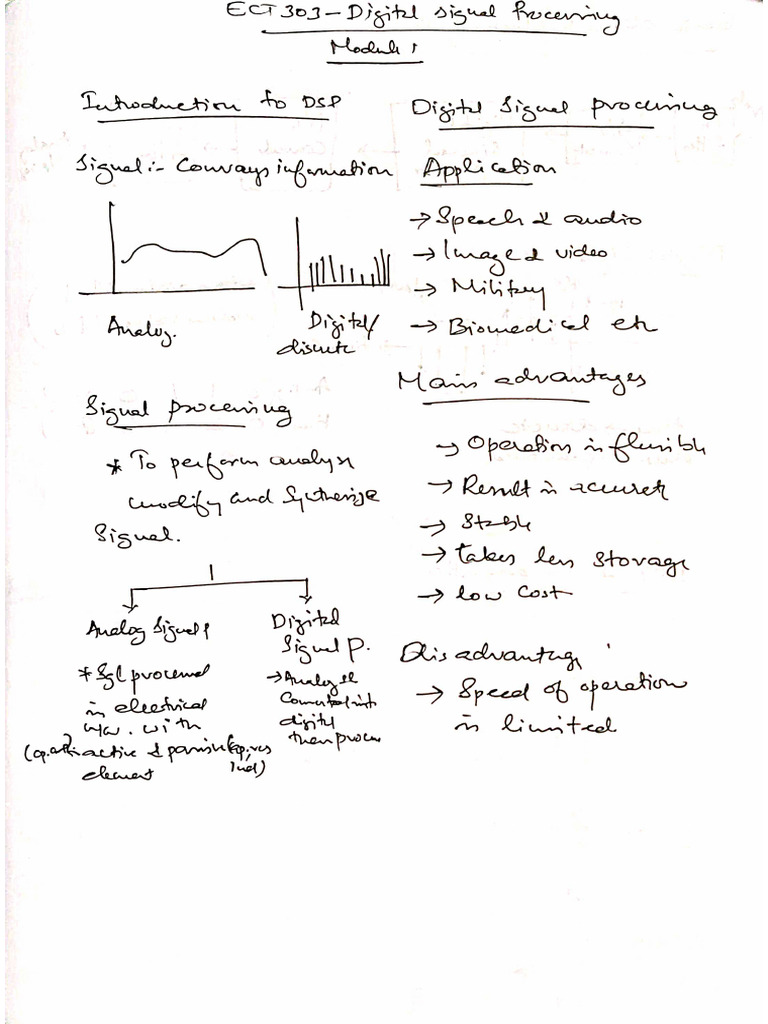 ECT303 - Digital Signal Processing
Module 1
Introduction to DSP
Signal :- Convays information
Analog.
Digital/
discrete
Signal processing
* To perform analyse
modify and Sythesize
Signal.
Analog Signal P
* Sgl processed
in electrical
n/w. with
active & passive
element
Digital
Signal P.
→ Analog
Converted into
digital
then process
Digital Signal processing
Application
→ Speech & audio
→ Image & video
→ Military
→ Biomedical etc
Main advantages
→ Operation is flexible
→ Result is accurate
→ Stable
→ takes less storage
→ low cost
Disadvantage
→ Speed of operation
is limited